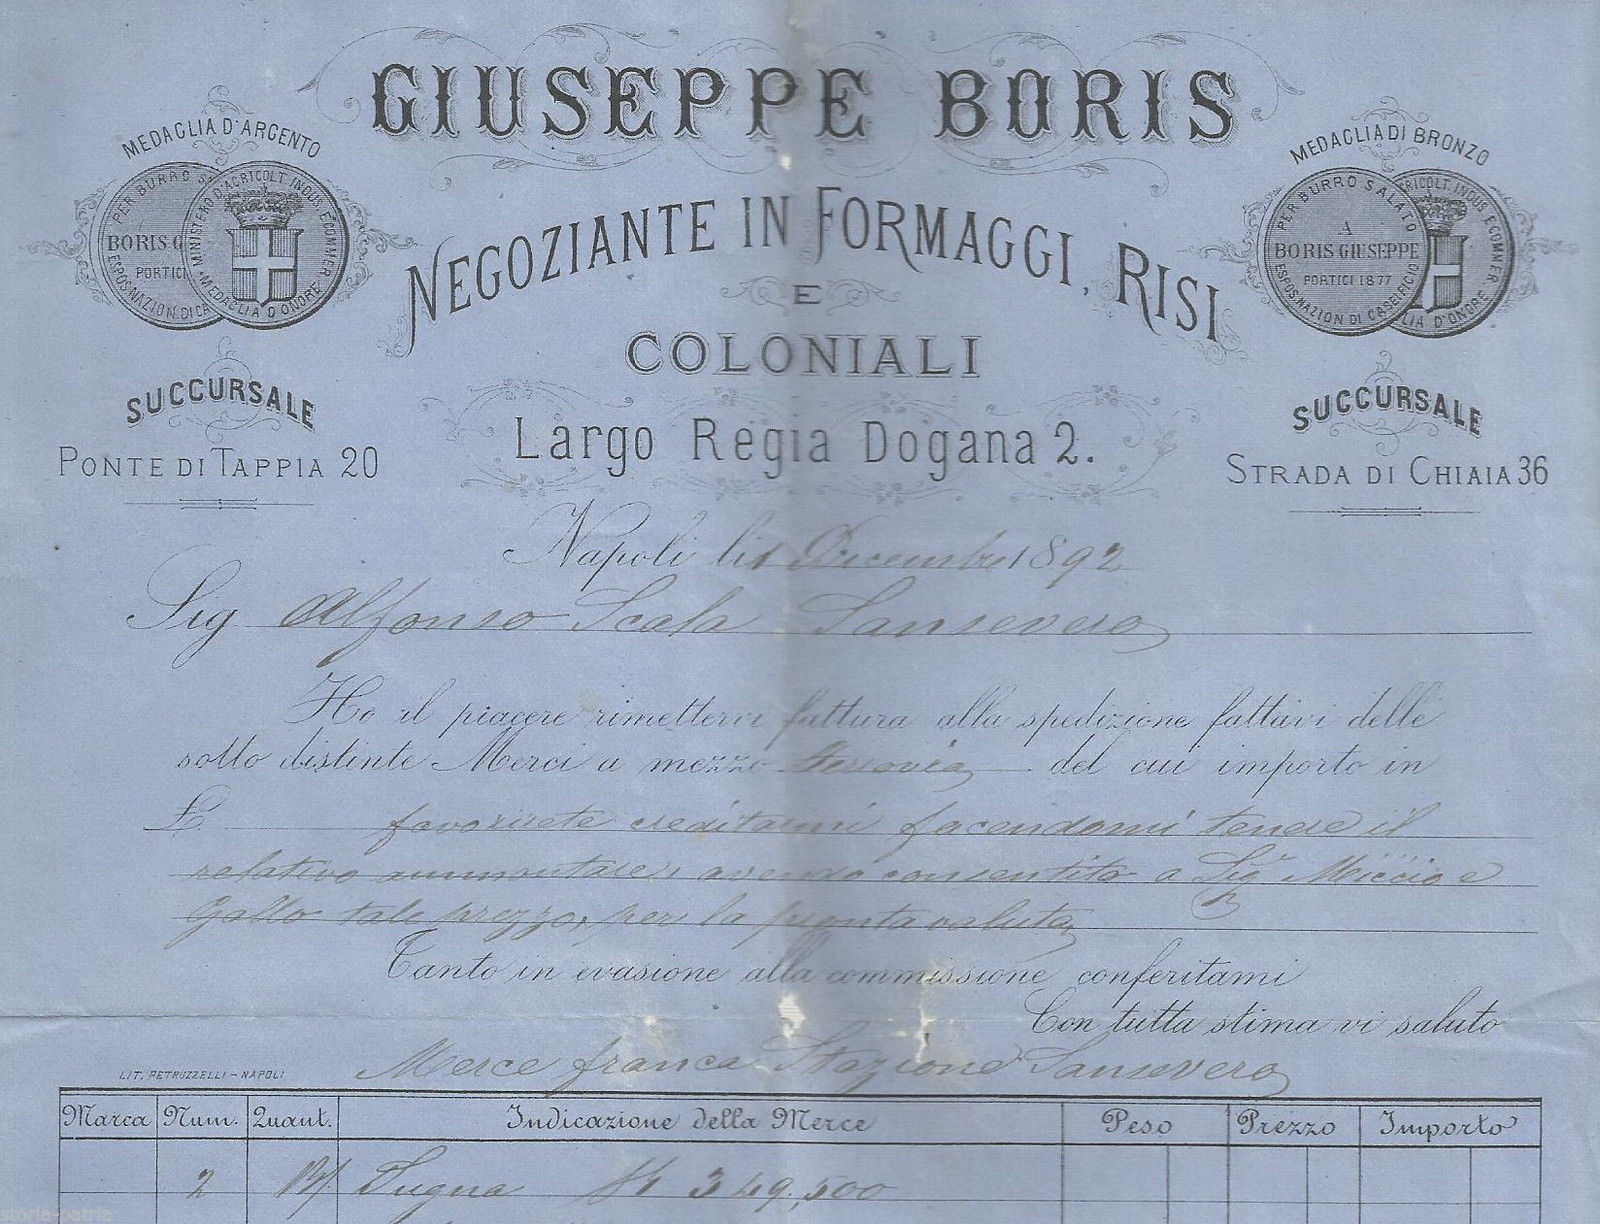 GIUSEPPE BORIS
MEDAGLIA D'ARGENTO
PER BURRO
BORIS G
PORTICI
ESPOS. NAZION. DI CA
MINISTERO D'AGRICOLT. INDUS. E COMMER.
MEDAGLIA D'ONORE
MEDAGLIA DI BRONZO
PER BURRO SALATO
A
BORIS GIUSEPPE
PORTICI 1877
ESPOS. NAZION. DI CASEIFICIO
RICOLT. INDUS. E COMMER.
LIA D'ONORE
NEGOZIANTE IN FORMAGGI, RISI
E
COLONIALI
SUCCURSALE
PONTE DI TAPPIA 20
Largo Regia Dogana 2.
SUCCURSALE
STRADA DI CHIAIA 36
Napoli li 1 Dicembre 1892
Sig Alfonso Scala Sansevero
Ho il piacere rimettervi fattura alla spedizione fattavi delle
sotto distinte Merci a mezzo Ferrovia del cui importo in
£. favorirete creditarmi facendomi tenere il
relativo ammontare, avendo consentito a Sigr Miccio e
Gallo tale prezzo, per la pronta valuta
Tanto in evasione alla commissione conferitami
Con tutta stima vi saluto
Merce franca Stazione Sansevero
LIT. PETRUZZELLI - NAPOLI
Marca Num. Quant. Indicazione della Merce Peso Prezzo Importo
2 Sugna 349,500
storia-patria